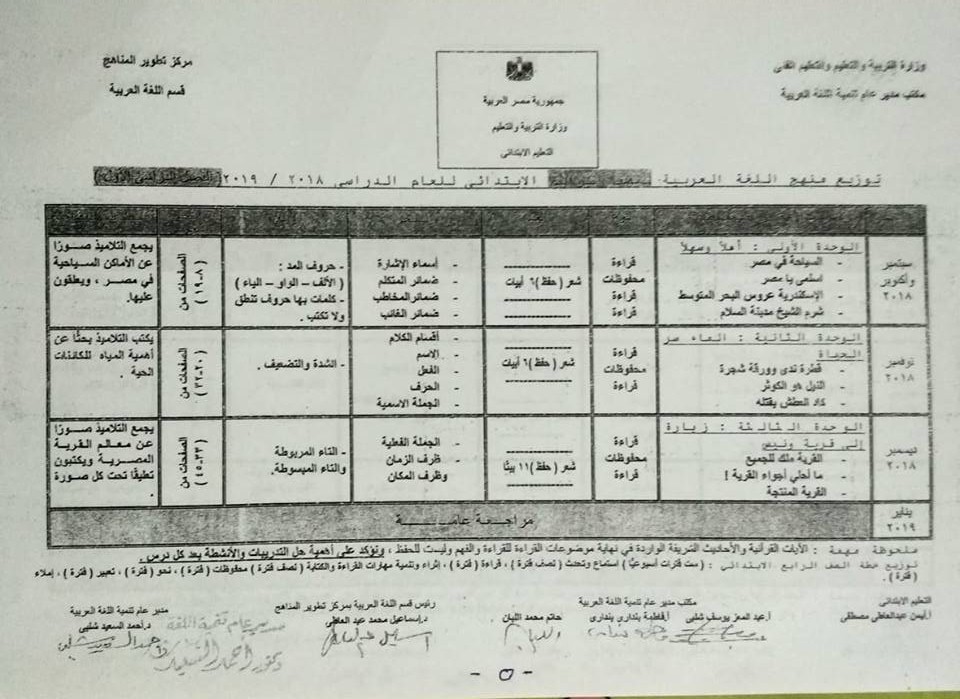 وزارة التربية والتعليم والتعليم الفنى
مكتب مدير عام تنمية اللغة العربية
جمهورية مصر العربية
وزارة التربية والتعليم
التعليم الابتدائى
مركز تطوير المناهج
قسم اللغة العربية
توزيع منهج اللغة العربية الابتدائى للعام الدراسى ٢٠١٨ / ٢٠١٩ (الفصل الدراسى الأول)
سبتمبر
وأكتوبر
٢٠١٨
الوحدة الأولى : أهلاً وسهلاً
- السياحة في مصر
- اسلمى يا مصر
- الإسكندرية عروس البحر المتوسط
- شرم الشيخ مدينة السلام
قراءة
محفوظات
قراءة
قراءة
شعر ( حفظ ) ٦ أبيات
- أسماء الإشارة
- ضمائر المتكلم
- ضمائر المخاطب
- ضمائر الغائب
- حروف المد :
( الألف – الواو – الياء )
- كلمات بها حروف تنطق
ولا تكتب .
الصفحات من
( ٨-١٩ )
يجمع التلاميذ صورًا
عن الأماكن السياحية
في مصر ، ويعلقون
عليها.
نوفمبر
٢٠١٨
الوحدة الثانية : الماء سر
الحياة
- قطرة ندى وورقة شجرة
- النيل هو الكوثر
- كاد العطش يقتله
قراءة
محفوظات
قراءة
شعر ( حفظ ) ٦ أبيات
- أقسام الكلام
- الاسم
- الفعل
- الحرف
- الجملة الاسمية
- الشدة والتضعيف .
الصفحات من
( ٢٠-٣٢ )
يكتب التلاميذ بحثًا عن
أهمية المياه للكائنات
الحية
ديسمبر
٢٠١٨
الوحدة الثالثة : زيارة
إلى قرية
- القرية ملك للجميع
- ما أحلي أجواء القرية !
- القرية المنتجة
قراءة
محفوظات
قراءة
شعر ( حفظ ) ١١ بيتًا
- الجملة الفعلية
- ظرف الزمان
وظرف المكان
- التاء المربوطة
والتاء المبسوطة.
الصفحات من
( ٣٣-٤٥ )
يجمع التلاميذ صورًا
عن معالم القرية
المصرية ويكتبون
تعليقًا تحت كل صورة .
يناير
٢٠١٩
مراجعة عامة
ملحوظة مهمة : الآيات القرآنية والأحاديث الشريفة الواردة في نهاية موضوعات القراءة للقراءة والفهم وليست للحفظ ، ونؤكد على أهمية حل التدريبات والأنشطة بعد كل درس .
توزيع خطة الصف الرابع الابتدائى : ( ست فترات أسبوعيًا ) استماع وتحدث ( نصف فترة ) ، قراءة ( فترة ) ، إثراء وتنمية مهارات القراءة والكتابة ( نصف فترة ) محفوظات ( فترة ) ، نحو ( فترة ) ، تعبير ( فترة ) ، إملاء
( فترة ) .
التعليم الابتدائى
أ.أيمن عبدالعاطى مصطفى
مكتب مدير عام تنمية اللغة العربية
أ.عبد المعز يوسف شلبى أ.فاطمة بندارى بندارى حاتم محمد اللبان
رئيس قسم اللغة العربية بمركز تطوير المناهج
د.إسماعيل محمد عبد العاطى
مدير عام تنمية اللغة العربية
د.أحمد السعيد شلبى
- ٥ -